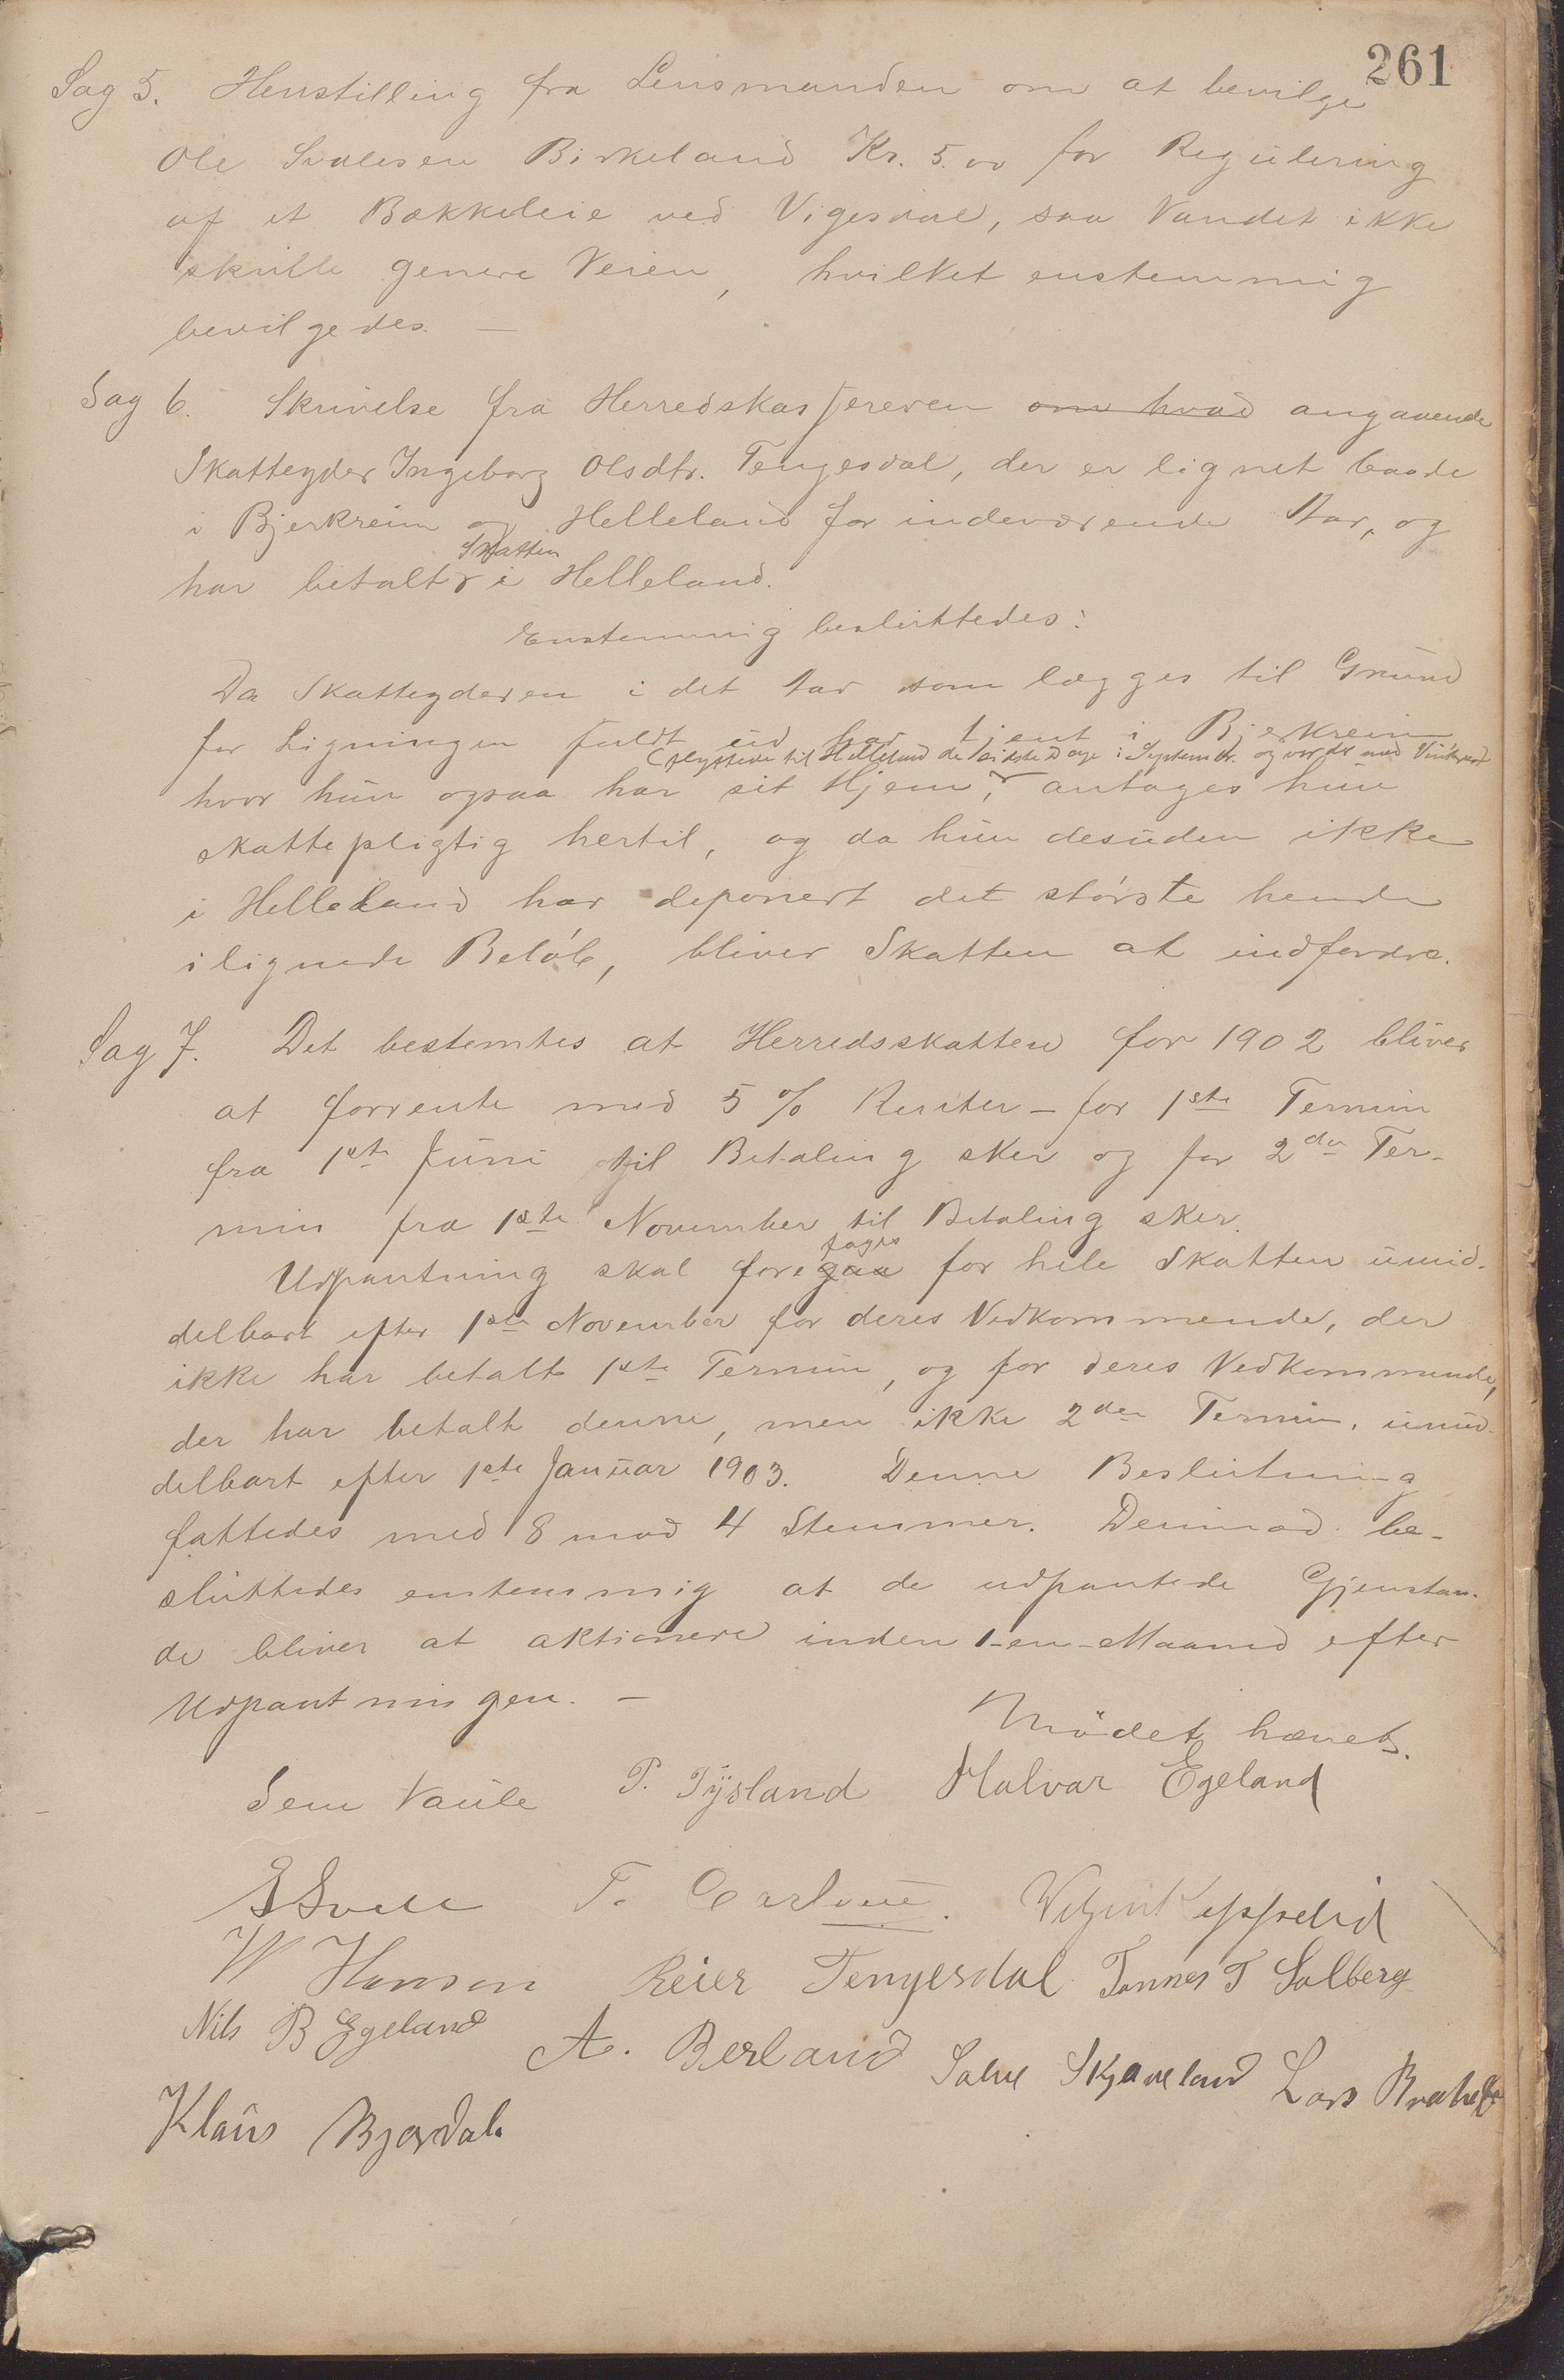 261
Sag 5. Henstilling fra Lensmanden om at bevilge
Ole Svalesen Birkeland Kr. 5.00 for Regulering
af et Bækkeleie ved Vigesdal, saa Vandet ikke
skulle genere Veien, hvilket enstemmig
bevilgedes. —
Sag 6. Skrivelse fra Herredskasjereren om hvad angaaende
Skatteyder Ingeborg Olsdtr. Tengesdal, der er lignet baade
i Bjerkreim og Helleland for indeværende Aar, og
Skatten
har betalt i Helleland.
Enstemmig besluttedes:
Da Skatteyderen i det Aar som lægges til Grund
for Ligningen fuldt ud har tjent i Bjerkreim
(flyttede til Helleland de sidste Dage i Septembr. og var der med
hvor hun ogsaa har sit Hjem, antages hun
skattepligtig hertil, og da hun desuden ikke
i Helleland har deponert det største hende
ilignede Beløb, bliver Skatten at indfordre.
Sag 7. Det bestemtes at Herredsskatten for 1902 bliver
at forrente med 5 % Renter – for 1ste Termin
fra 1ste Juni til Betaling sker og for 2den Ter-
min fra 1ste November til Betaling sker.
tages
Udpantning skal foregaa for hele Skatten umid-
delbart efter 1ste November for deres Vedkommende, der
ikke har betalt 1ste Termin, og for deres Vedkommende,
der har betalt denne, men ikke 2den Termin, umid-
delbart efter 1ste Januar 1903. Denne Beslutning
fattedes med 8 mod 4 Stemmer. Derimod be-
sluttedes enstemmig at de udpantede Gjenstan-
de bliver at aktionere inden 1-en-Maaned efter
Udpantningen. —
Mødet hævet.
Sem Vaule P. Tysland Halvar Egeland
T.
W Hansen Reier Tengesdal Tønnes T Solberg
Nils B Egeland A. Berland Salve Skjæveland Lars
Klaus Bjordal